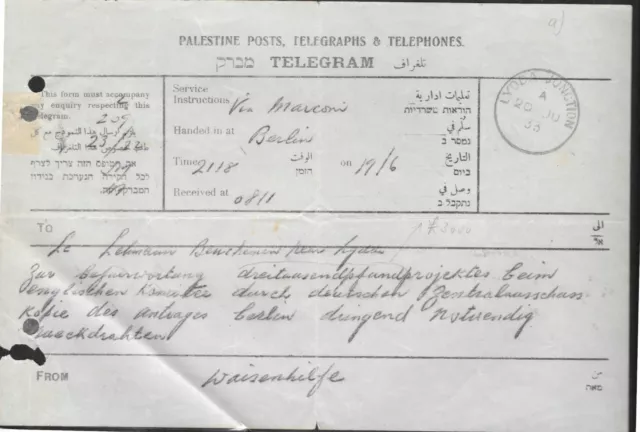 a)
PALESTINE POSTS, TELEGRAPHS & TELEPHONES.
מברק TELEGRAM تلغراف
This form must accompany
any enquiry respecting this
telegram.
يجب ارسال هذا النموذج مع كل
את הטופס הזה צריך לצרף
לכל חקירה הנעשית בנידון
המברק הזה.
209
Service
Instructions
Via Marconi
تعليمات ادارية
הוראות משרדיות
Handed in at
Berlin
سلم في
נמסר ב
Time
2118
الوقت
הזמן
on 19/6
التاريخ
ביום
Received at
0811
وصل في
נתקבל ב
LYDDA JUNCTION
A
20 JU
35
To
الى
אל
Lc Lehmann Benshemen near Lydda
£3000
Zur befuerwortung dreitausendpfundprojektes beim
englischen Komitee durch deutschen Zentralausschuss
Kopie des antrages berlin dringend notwendig
From
Waisenhilfe
من
מאת